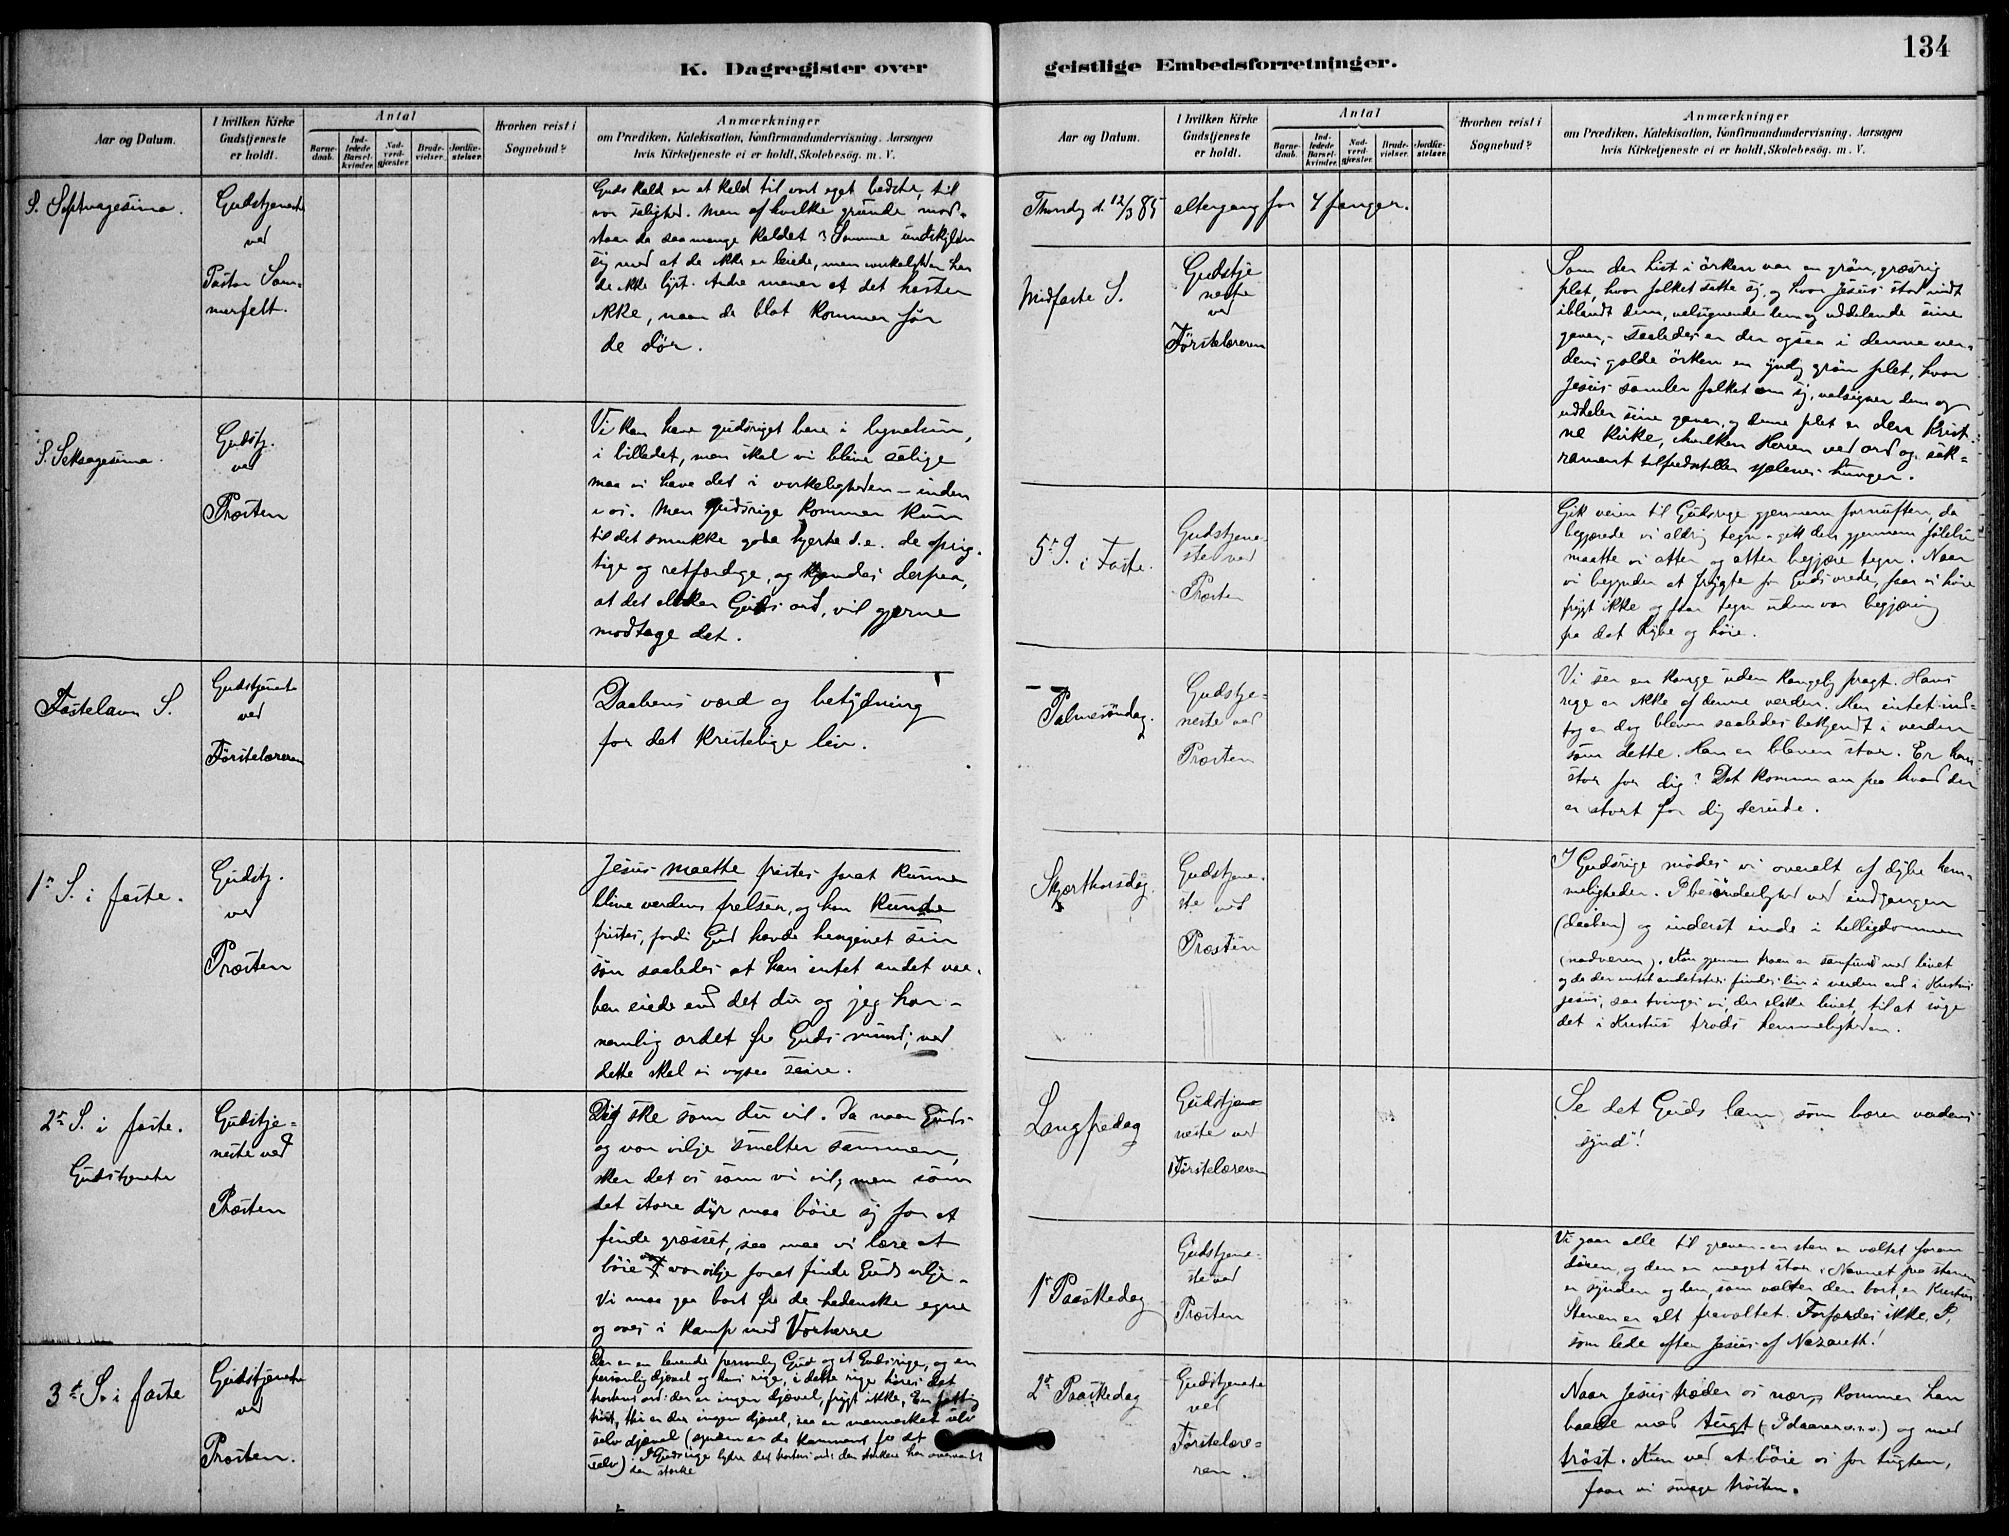 K. Dagregister over
Aar og Datum.
I hvilken Kirke
Gudstjeneste
er holdt.
Antal
Barne-
daab.
Ind-
ledede
Barsel-
kvinder.
Nad-
verd-
gjæster.
Brude-
vielser.
Jordfæ-
stelser.
Hvorhen reist i
Sognebud?
Anmærkninger
om Prædiken, Katekisation, Konfirmandundervisning. Aarsagen
hvis Kirketjeneste ei er holdt, Skolebesög. m. V.
S. Septuagesima.
Gudstjeneste
ved
Pastor Som-
merfelt.
Guds kald er et kald til vort eget bedste, til
vor salighed. Men af hvilke grunde mod-
staar da saa mange kaldet? Somme undskylder
sig med at de ikke er ledige, men virkeligheden har
de ikke lyst. Andre mener at det haster
ikke, naar de blot kommer før
de dør.
S. Seksagesima.
Gudstj.
ved
Præsten
Vi kan have gudsriget bare i lignelsen,
i billedet, men skal vi blive salige
maa vi have det i virkeligheden – inden
i os. Men gudsrige kommer kun
til det smukke gode hjerte d.e. de oprig-
tige og retfærdige, og kjendes derpaa,
at det elsker Guds ord, vil gjerne
modtage det.
Fastelavn S.
Gudstjeneste
ved
Førstelæreren
Daabens værd og betydning
for det kristelige liv.
1ste S. i faste.
Gudstj.
ved
Præsten
Jesus maatte fristes forat kunne
blive verdens frelser, og han kunde
fristes, fordi Gud havde hengivet sin
søn saaledes at han intet andet vaa-
ben eiede end det du og jeg har –
nemlig ordet fra Guds mund; ved
dette skal vi ogsaa seire.
2den S. i faste.
Gudstjeneste
Gudstje-
neste ved
Præsten
Dig ske som du vil. Ja naar Guds
og vor vilje smelter sammen,
sker det os som vi vil, men som
det store dyr maa bøie sig for at
finde græsset, saa maa vi lære at
böie vor vilje forat finde Guds vilje –
Vi maa gaa bort fra de hedenske egne
og oves i kamp med Vorherre
3die S. i faste
Gudstjeneste
ved
Præsten.
Der er en levende personlig Gud og et Gudsrige, og en
personlig djævel og hans rige, i dette rige høres det
trøstens ord: der er ingen djævel, frygt ikke. En fattig
trøst, thi er der ingen djævel, saa er mennesket selv
selv djævel (synden er da kommen fra det
selv). I Gudsrige lyder det trøstens ord: den stærkere har overvundet
den stærke
geistlige Embedsforretninger.
134
Aar og Datum.
I hvilken Kirke
Gudstjeneste
er holdt.
Antal
Barne-
daab.
Ind-
ledede
Barsel-
kvinder.
Nad-
verd-
gjæster.
Brude-
vielser.
Jordfæ-
stelser.
Hvorhen reist i
Sognebud?
Anmærkninger
om Prædiken, Katekisation, Konfirmandundervisning. Aarsagen
hvis Kirketjeneste ei er holdt, Skolebesög. m. V.
Thorsdag d. 12/3 85 altergang for 4 fanger.
Midfaste S.
Gudstje
neste
ved
Førstelæreren
Som der hist i örken var en grøn, græsrig
plet, hvor folket satte sig, og hvor Jesus stod midt
iblandt dem, velsignende dem og uddelende sine
gaver, – saaledes er der ogsaa i denne ver-
dens golde örken en yndig grøn plet, hvor
Jesus samler folket om sig, velsigner dem og
uddeler sine gaver, og denne plet er den krist-
ne kirke, i hvilken Herren ved ord og sak-
rament tilfredsstiller sjælenes hunger.
5te S. i Faste.
Gudstjene-
ste ved
Præsten
Gik veien til Gudsrige gjennem fornuften, da
begjærede vi aldrig tegn – gik den gjennem følelsen
maatte vi atter og atter begjære tegn. Naar
vi begynder at frygte for Guds vrede, faar vi høre
frygt ikke og faar tegn uden vor begjæring
fra det dybe og høie.
Palmesöndag.
Gudstje-
neste ved
Præsten
Vi ser en konge uden kongelig pragt. Hans
rige er ikke af denne verden. Men intet ind-
tog er dog bleven saaledes bekjendt i verden
som dette. Han er bleven stor. Er han
stor for dig? Det kommer an paa hvad der
er stort for dig derude.
Skjærthorsdag.
Gudstjene-
ste ved
Præsten
I Gudsrige mødes vi overalt af dybe hem-
meligheder. I besönderlighed ved indgangen
(daaben) og inderst inde i helligdommen
(nadveren). Kun gjennem troen er samfund med livet
og da der intet andetsteds findes liv i verden end i Kristus
Jesus, saa tvinges vi, der elske livet, til at søge
det i Kristus trods hemmeligheden.
Langfredag
Gudstje
neste ved
Førstelæreren
Se det Guds lam, som bærer verdens
synd"!
1ste Paaskedag
Gudstjene-
ste ved
Præsten
Vi gaar alle til graven – en sten er væltet foran
dören, og den er meget stor. Navnet paa stenen
er synden og den, som vælter den bort, er Kristus
Stenen er alt fravæltet. Forfærdes ikke, I,
som lede efter Jesus af Nazareth!
2den Paaskedag
Gudstjeneste
ved
Førstelære-
ren.
Naar Jesus træder os nær, kommer han
baade med tugt (I daarer o.s.v.) og med
trøst. Kun ved at böie os for tugten,
faar vi smage trösten.